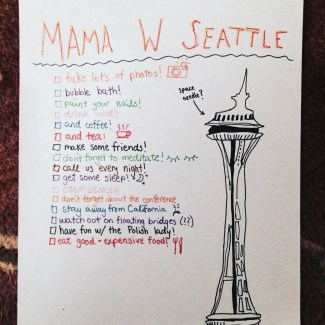 MAMA W SEATTLE
take lot's of photos!
bubble bath!
paint your nails!
drink wine!
and coffee!
and tea!
make some friends!
don't forget to meditate!
call us every night!
get some sleep!
CONFIDENCE!!
don't forget about the conference
stay away from California
watch out on floating bridges (??)
have fun w/ the Polish lady!
eat good + expensive food!
space needle?